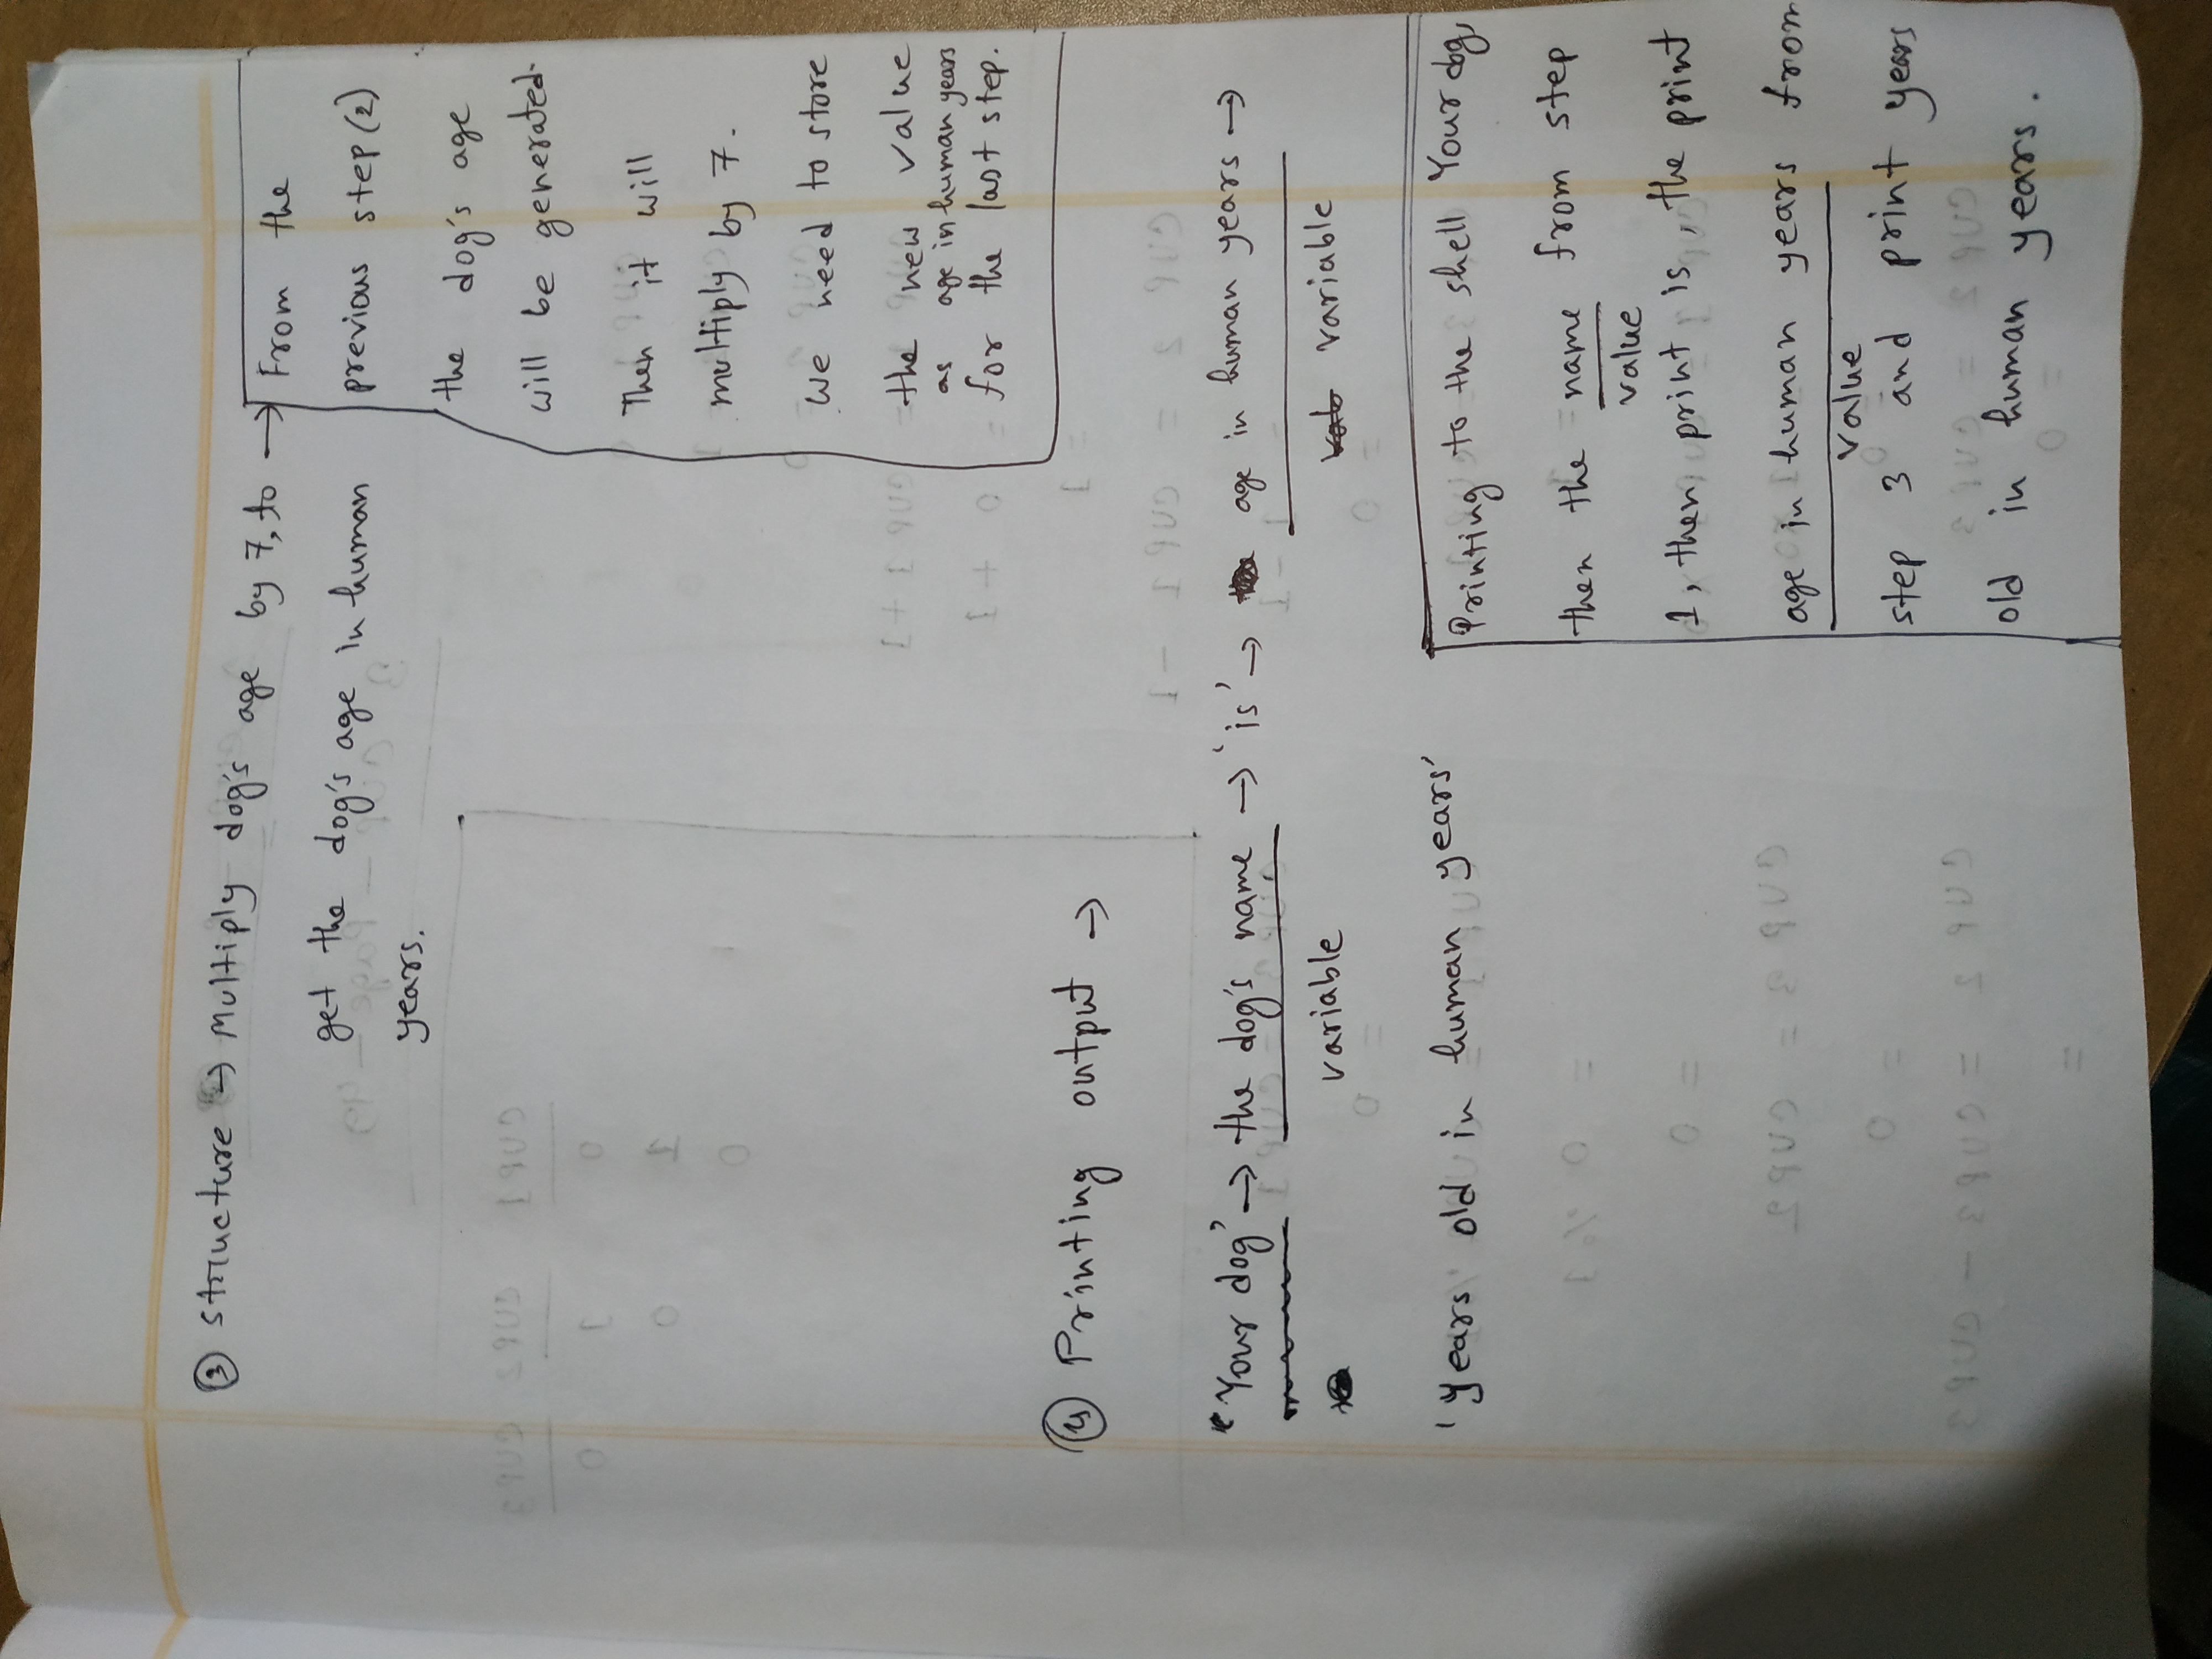 ③ structure → Multiply dog's age by 7, to →
get the dog's age in human
years.
From the
previous step (2)
the dog's age
will be generated.
Then it will
multiply by 7.
We need to store
the new value
as age in human years
for the last step.
④ Printing output →
'Your dog' → the dog's name → 'is' → age in human years →
variable variable
'years old in human years'
Printing to the shell Your dog,
then the name from step
value
1, then print is, the print
age in human years from
value
step 3 and print years
old in human years.